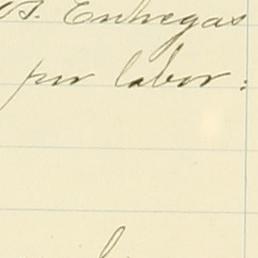 Entregas
por labor: